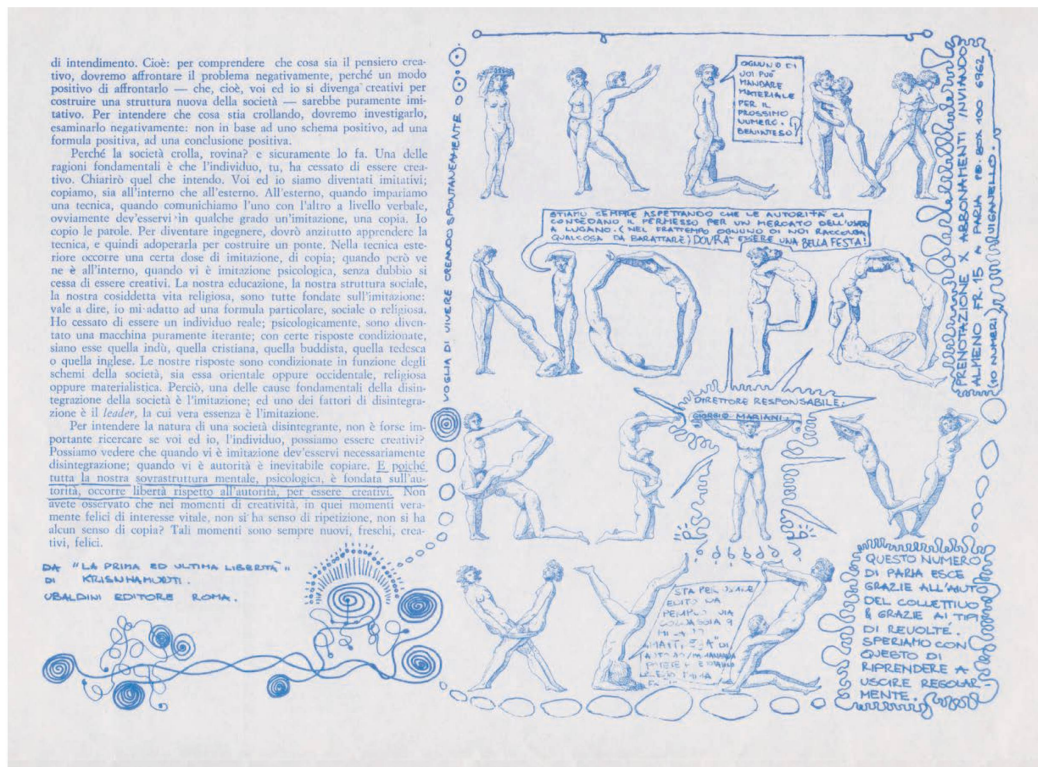 di intendimento. Cioè: per comprendere che cosa sia il pensiero crea-
tivo, dovremo affrontare il problema negativamente, perché un modo
positivo di affrontarlo — che, cioè, voi ed io si divenga creativi per
costruire una struttura nuova della società — sarebbe puramente imi-
tativo. Per intendere che cosa stia crollando, dovremo investigarlo,
esaminarlo negativamente: non in base ad uno schema positivo, ad una
formula positiva, ad una conclusione positiva.
Perché la società crolla, rovina? e sicuramente lo fa. Una delle
ragioni fondamentali è che l'individuo, tu, ha cessato di essere crea-
tivo. Chiarirò quel che intendo. Voi ed io siamo diventati imitativi;
copiamo, sia all'interno che all'esterno. All'esterno, quando impariamo
una tecnica, quando comunichiamo l'uno con l'altro a livello verbale,
ovviamente dev'esservi in qualche grado un'imitazione, una copia. Io
copio le parole. Per diventare ingegnere, dovrò anzitutto apprendere la
tecnica, e quindi adoperarla per costruire un ponte. Nella tecnica este-
riore occorre una certa dose di imitazione, di copia; quando però ve
ne è all'interno, quando vi è imitazione psicologica, senza dubbio si
cessa di essere creativi. La nostra educazione, la nostra struttura sociale,
la nostra cosiddetta vita religiosa, sono tutte fondate sull'imitazione:
vale a dire, io mi adatto ad una formula particolare, sociale o religiosa.
Ho cessato di essere un individuo reale; psicologicamente, sono diven-
tato una macchina puramente iterante; con certe risposte condizionate,
siano esse quella indù, quella cristiana, quella buddista, quella tedesca
o quella inglese. Le nostre risposte sono condizionate in funzione degli
schemi della società, sia essa orientale oppure occidentale, religiosa
oppure materialistica. Perciò, una delle cause fondamentali della disin-
tegrazione della società è l'imitazione; ed uno dei fattori di disintegra-
zione è il leader, la cui vera essenza è l'imitazione.
Per intendere la natura di una società disintegrante, non è forse im-
portante ricercare se voi ed io, l'individuo, possiamo essere creativi?
Possiamo vedere che quando vi è imitazione dev'esservi necessariamente
disintegrazione; quando vi è autorità è inevitabile copiare. E poiché
tutta la nostra sovrastruttura mentale, psicologica, è fondata sull'au-
torità, occorre libertà rispetto all'autorità, per essere creativi. Non
avete osservato che nei momenti di creatività, in quei momenti vera-
mente felici di interesse vitale, non si ha senso di ripetizione, non si ha
alcun senso di copia? Tali momenti sono sempre nuovi, freschi, crea-
tivi, felici.
DA "LA PRIMA ED ULTIMA LIBERTÀ"
DI KRISHNAMURTI.
UBALDINI EDITORE ROMA.
VOGLIA DI VIVERE CREANDO SPONTANEAMENTE
I K L M
OGNUNO DI
VOI PUÒ
MANDARE
MATERIALE
PER IL
PROSSIMO
NUMERO.
BENINTESO!
STIAMO SEMPRE ASPETTANDO CHE LE AUTORITÀ CI
CONCEDANO IL PERMESSO PER UN MERCATO DELL'USATO
A LUGANO. (NEL FRATTEMPO OGNUNO DI NOI RACCOLGA
QUALCOSA DA BARATTARE) DOVRÀ ESSERE UNA BELLA FESTA!
N O P Q
DIRETTORE RESPONSABILE:
GIORGIO MARIANI.
R S T V
X Y Z
STA PER
EDITO DA
TEMPLO VIA
9
DI
POESIE
PRENOTAZIONE X ABBONAMENTI INVIANDO
ALMENO FR. 15 A PARIA PB. BOX 100 6962
(10 NUMERI) VIGANELLO.
QUESTO NUMERO
DI PARIA ESCE
GRAZIE ALL'AIUTO
DEL COLLETTIVO
E GRAZIE AI TIPI
DI REVOLTE.
SPERIAMO CON
QUESTO DI
RIPRENDERE A
USCIRE REGOLAR-
MENTE.